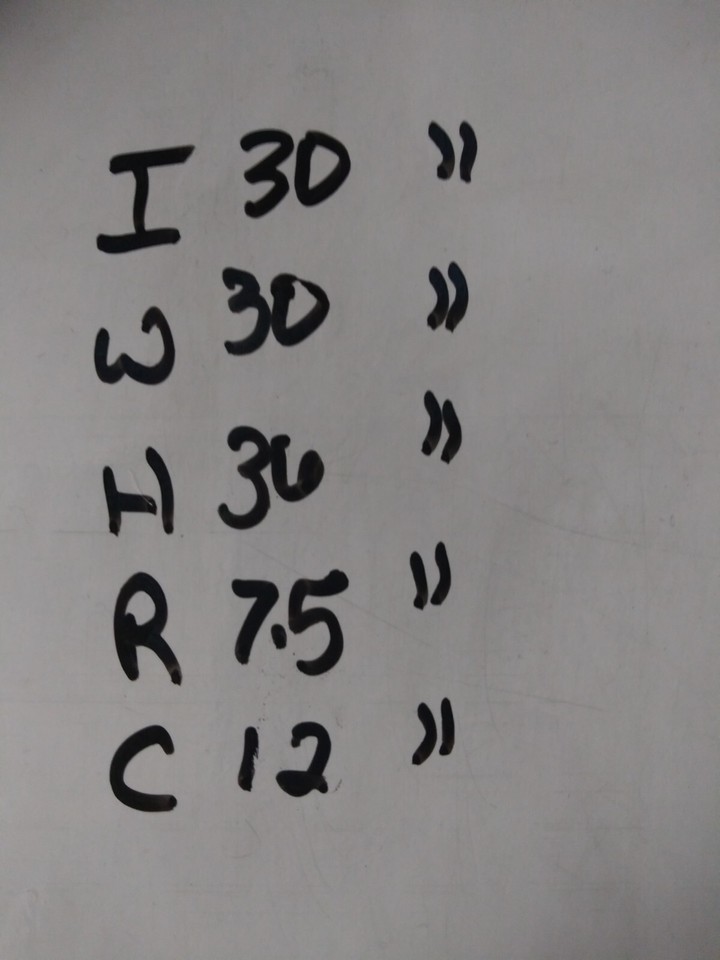 I 30 "
W 30 "
I 36 "
R 7.5 "
C 12 "